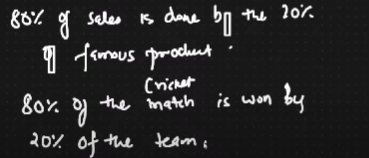 80% of sales is done by the 20%
of famous product.
80% of the Cricket match is won by
20% of the team.